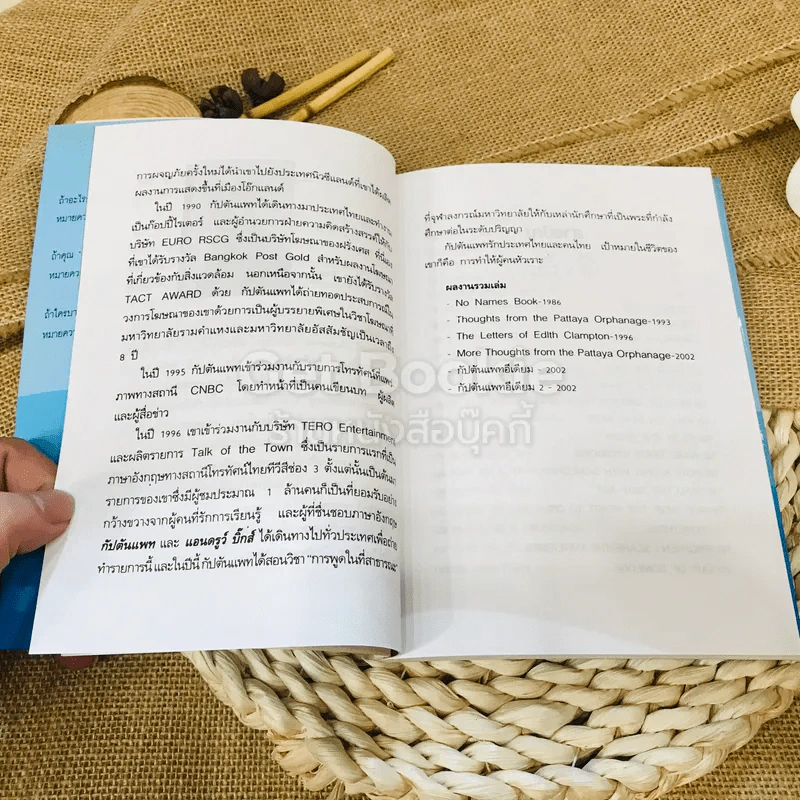 ถ้าอะไร
หมายคว
ถ้าคุณ
หมายคว
ถ้าใครบา
หมายคว
การผจญภัยครั้งใหม่ได้นำเขาไปยังประเทศนิวซีแลนด์ที่เขาได้ผลิต
ผลงานการแสดงขึ้นที่เมืองโอ๊กแลนด์
ในปี 1990 กัปตันแพทได้เดินทางมาประเทศไทยและทำงาน
เป็นก๊อปปี้ไรเตอร์ และผู้อำนวยการฝ่ายความคิดสร้างสรรค์ให้กับ
บริษัท EURO RSCG ซึ่งเป็นบริษัทโฆษณาของฝรั่งเศส ที่นี่เอง
ที่เขาได้รับรางวัล Bangkok Post Gold สำหรับผลงานโฆษณา
ที่เกี่ยวข้องกับสิ่งแวดล้อม นอกเหนือจากนั้น เขายังได้รับรางวัล
TACT AWARD ด้วย กัปตันแพทได้ถ่ายทอดประสบการณ์ใน
วงการโฆษณาของเขาด้วยการเป็นผู้บรรยายพิเศษในวิชาโฆษณาที่
มหาวิทยาลัยรามคำแหงและมหาวิทยาลัยอัสสัมชัญเป็นเวลาถึง
8 ปี
ในปี 1995 กัปตันแพทเข้าร่วมงานกับรายการโทรทัศน์ที่แพร่
ภาพทางสถานี CNBC โดยทำหน้าที่เป็นคนเขียนบท ผู้ผลิต
และผู้สื่อข่าว
ในปี 1996 เขาเข้าร่วมงานกับบริษัท TERO Entertainment
และผลิตรายการ Talk of the Town ซึ่งเป็นรายการแรกที่เป็น
ภาษาอังกฤษทางสถานีโทรทัศน์ไทยทีวีสีช่อง 3 ตั้งแต่นั้นเป็นต้นมา
รายการของเขาซึ่งมีผู้ชมประมาณ 1 ล้านคนก็เป็นที่ยอมรับอย่าง
กว้างขวางจากผู้คนที่รักการเรียนรู้ และผู้ที่ชื่นชอบภาษาอังกฤษ
กัปตันแพท และ แอนดรูว์ บิ๊กส์ ได้เดินทางไปทั่วประเทศเพื่อถ่าย
ทำรายการนี้ และในปีนี้ กัปตันแพทได้สอนวิชา "การพูดในที่สาธารณะ"
ที่จุฬาลงกรณ์มหาวิทยาลัยให้กับเหล่านักศึกษาที่เป็นพระที่กำลัง
ศึกษาต่อในระดับปริญญา
กัปตันแพทรักประเทศไทยและคนไทย เป้าหมายในชีวิตของ
เขาก็คือ การทำให้ผู้คนหัวเราะ
ผลงานรวมเล่ม
- No Names Book-1986
- Thoughts from the Pattaya Orphanage-1993
- The Letters of Edith Clampton-1996
- More Thoughts from the Pattaya Orphanage-2002
- กัปตันแพทอีเดียม - 2002
- กัปตันแพทอีเดียม 2 - 2002
Get Booky
ร้านหนังสือบุ๊คกี้